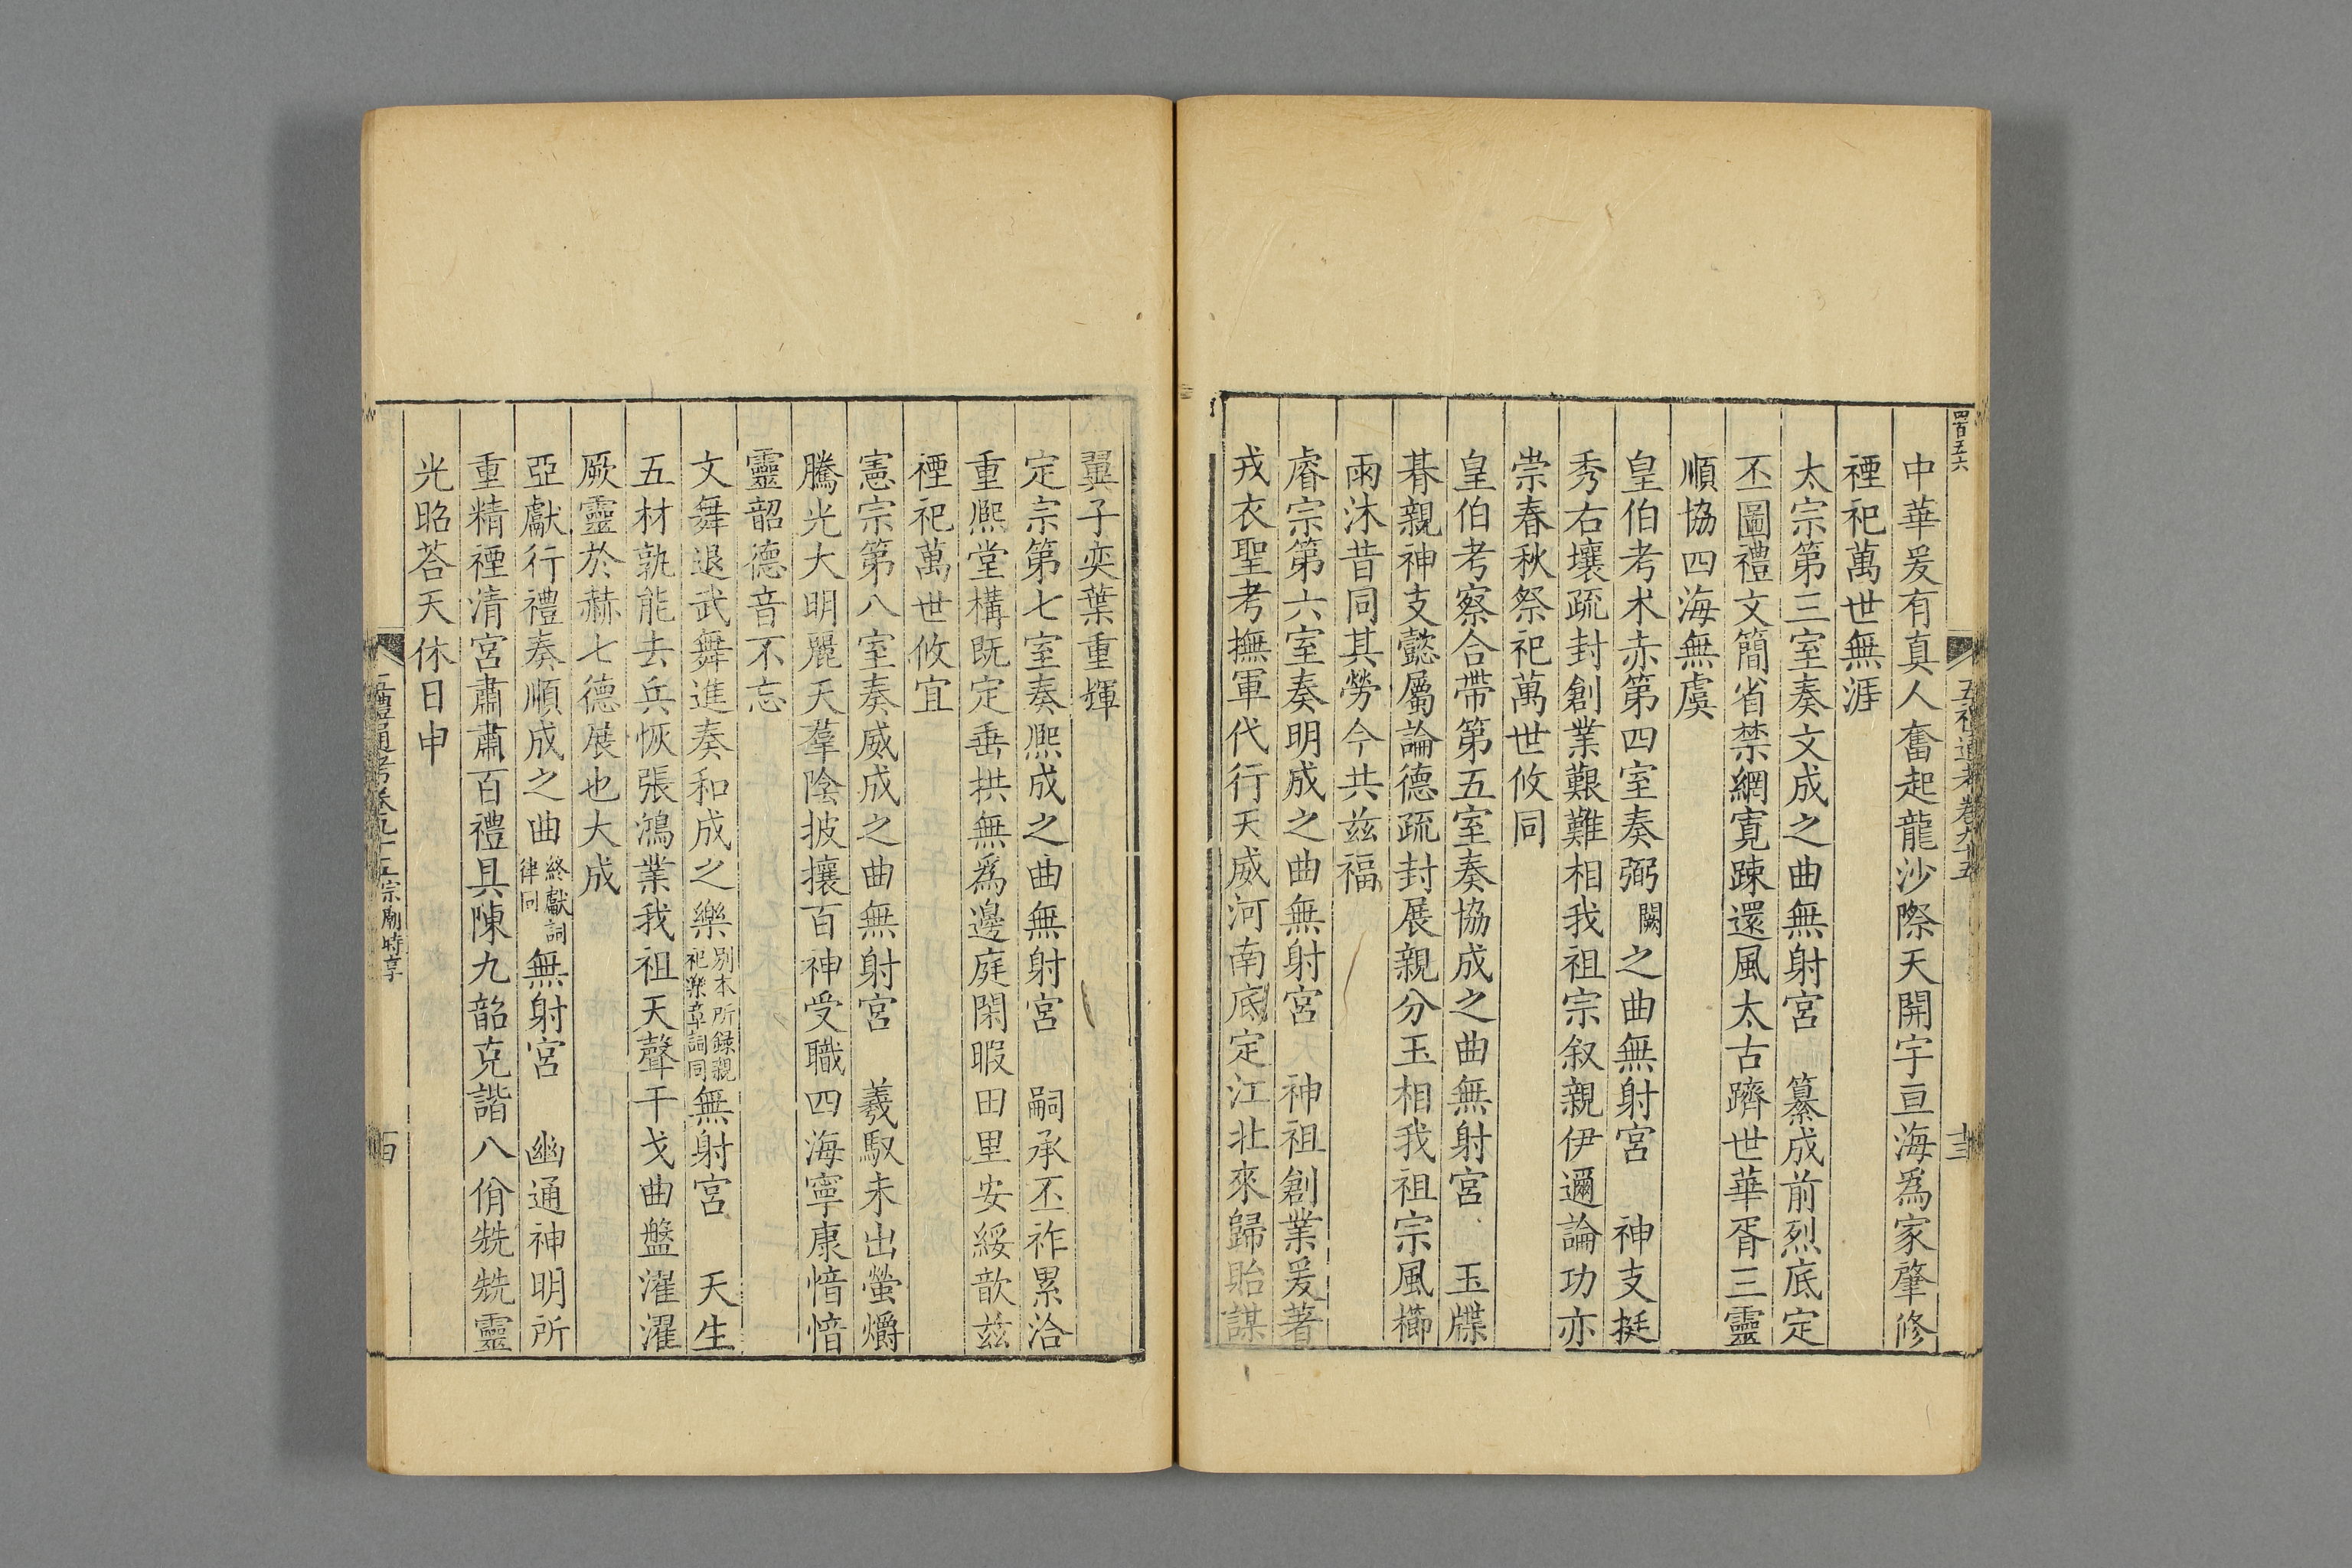 四百五六
五禮通考卷九十五
十三
中華爰有真人奮起龍沙際天開宇亘海爲家肇修
禋祀萬世無涯
太宗第三室奏文成之曲無射宮　纂成前烈底定
丕圖禮文簡省禁網寬踈還風太古躋世華胥三靈
順協四海無虞
皇伯考术赤第四室奏弼闕之曲無射宮　神支挺
秀右壤疏封創業艱難相我祖宗叙親伊邇論功亦
崇春秋祭祀萬世攸同
皇伯考察合帶第五室奏協成之曲無射宮　玉牒
朞親神支懿屬論德疏封展親分玉相我祖宗風櫛
雨沐昔同其勞今共兹福
睿宗第六室奏明成之曲無射宮　神祖創業爰著
戎衣聖考撫軍代行天威河南底定江北來歸貽謀
翼子奕葉重輝
定宗第七室奏熙成之曲無射宮　嗣承丕祚累洽
重熙堂構既定垂拱無爲邊庭閑暇田里安綏歆兹
禋祀萬世攸宜
憲宗第八室奏威成之曲無射宮　羲馭未出螢爝
騰光大明麗天羣陰披攘百神受職四海寧康愔愔
靈韶德音不忘
文舞退武舞進奏和成之樂別本所録親祀樂章詞同無射宮　天生
五材孰能去兵恢張鴻業我祖天聲干戈曲盤濯濯
厥靈於赫七德展也大成
亞獻行禮奏順成之曲終獻詞律同無射宮　幽通神明所
重精禋清宮肅肅百禮具陳九韶克諧八佾兟兟靈
光昭荅天休日申
五禮通考卷九十五　宗廟時享
十四